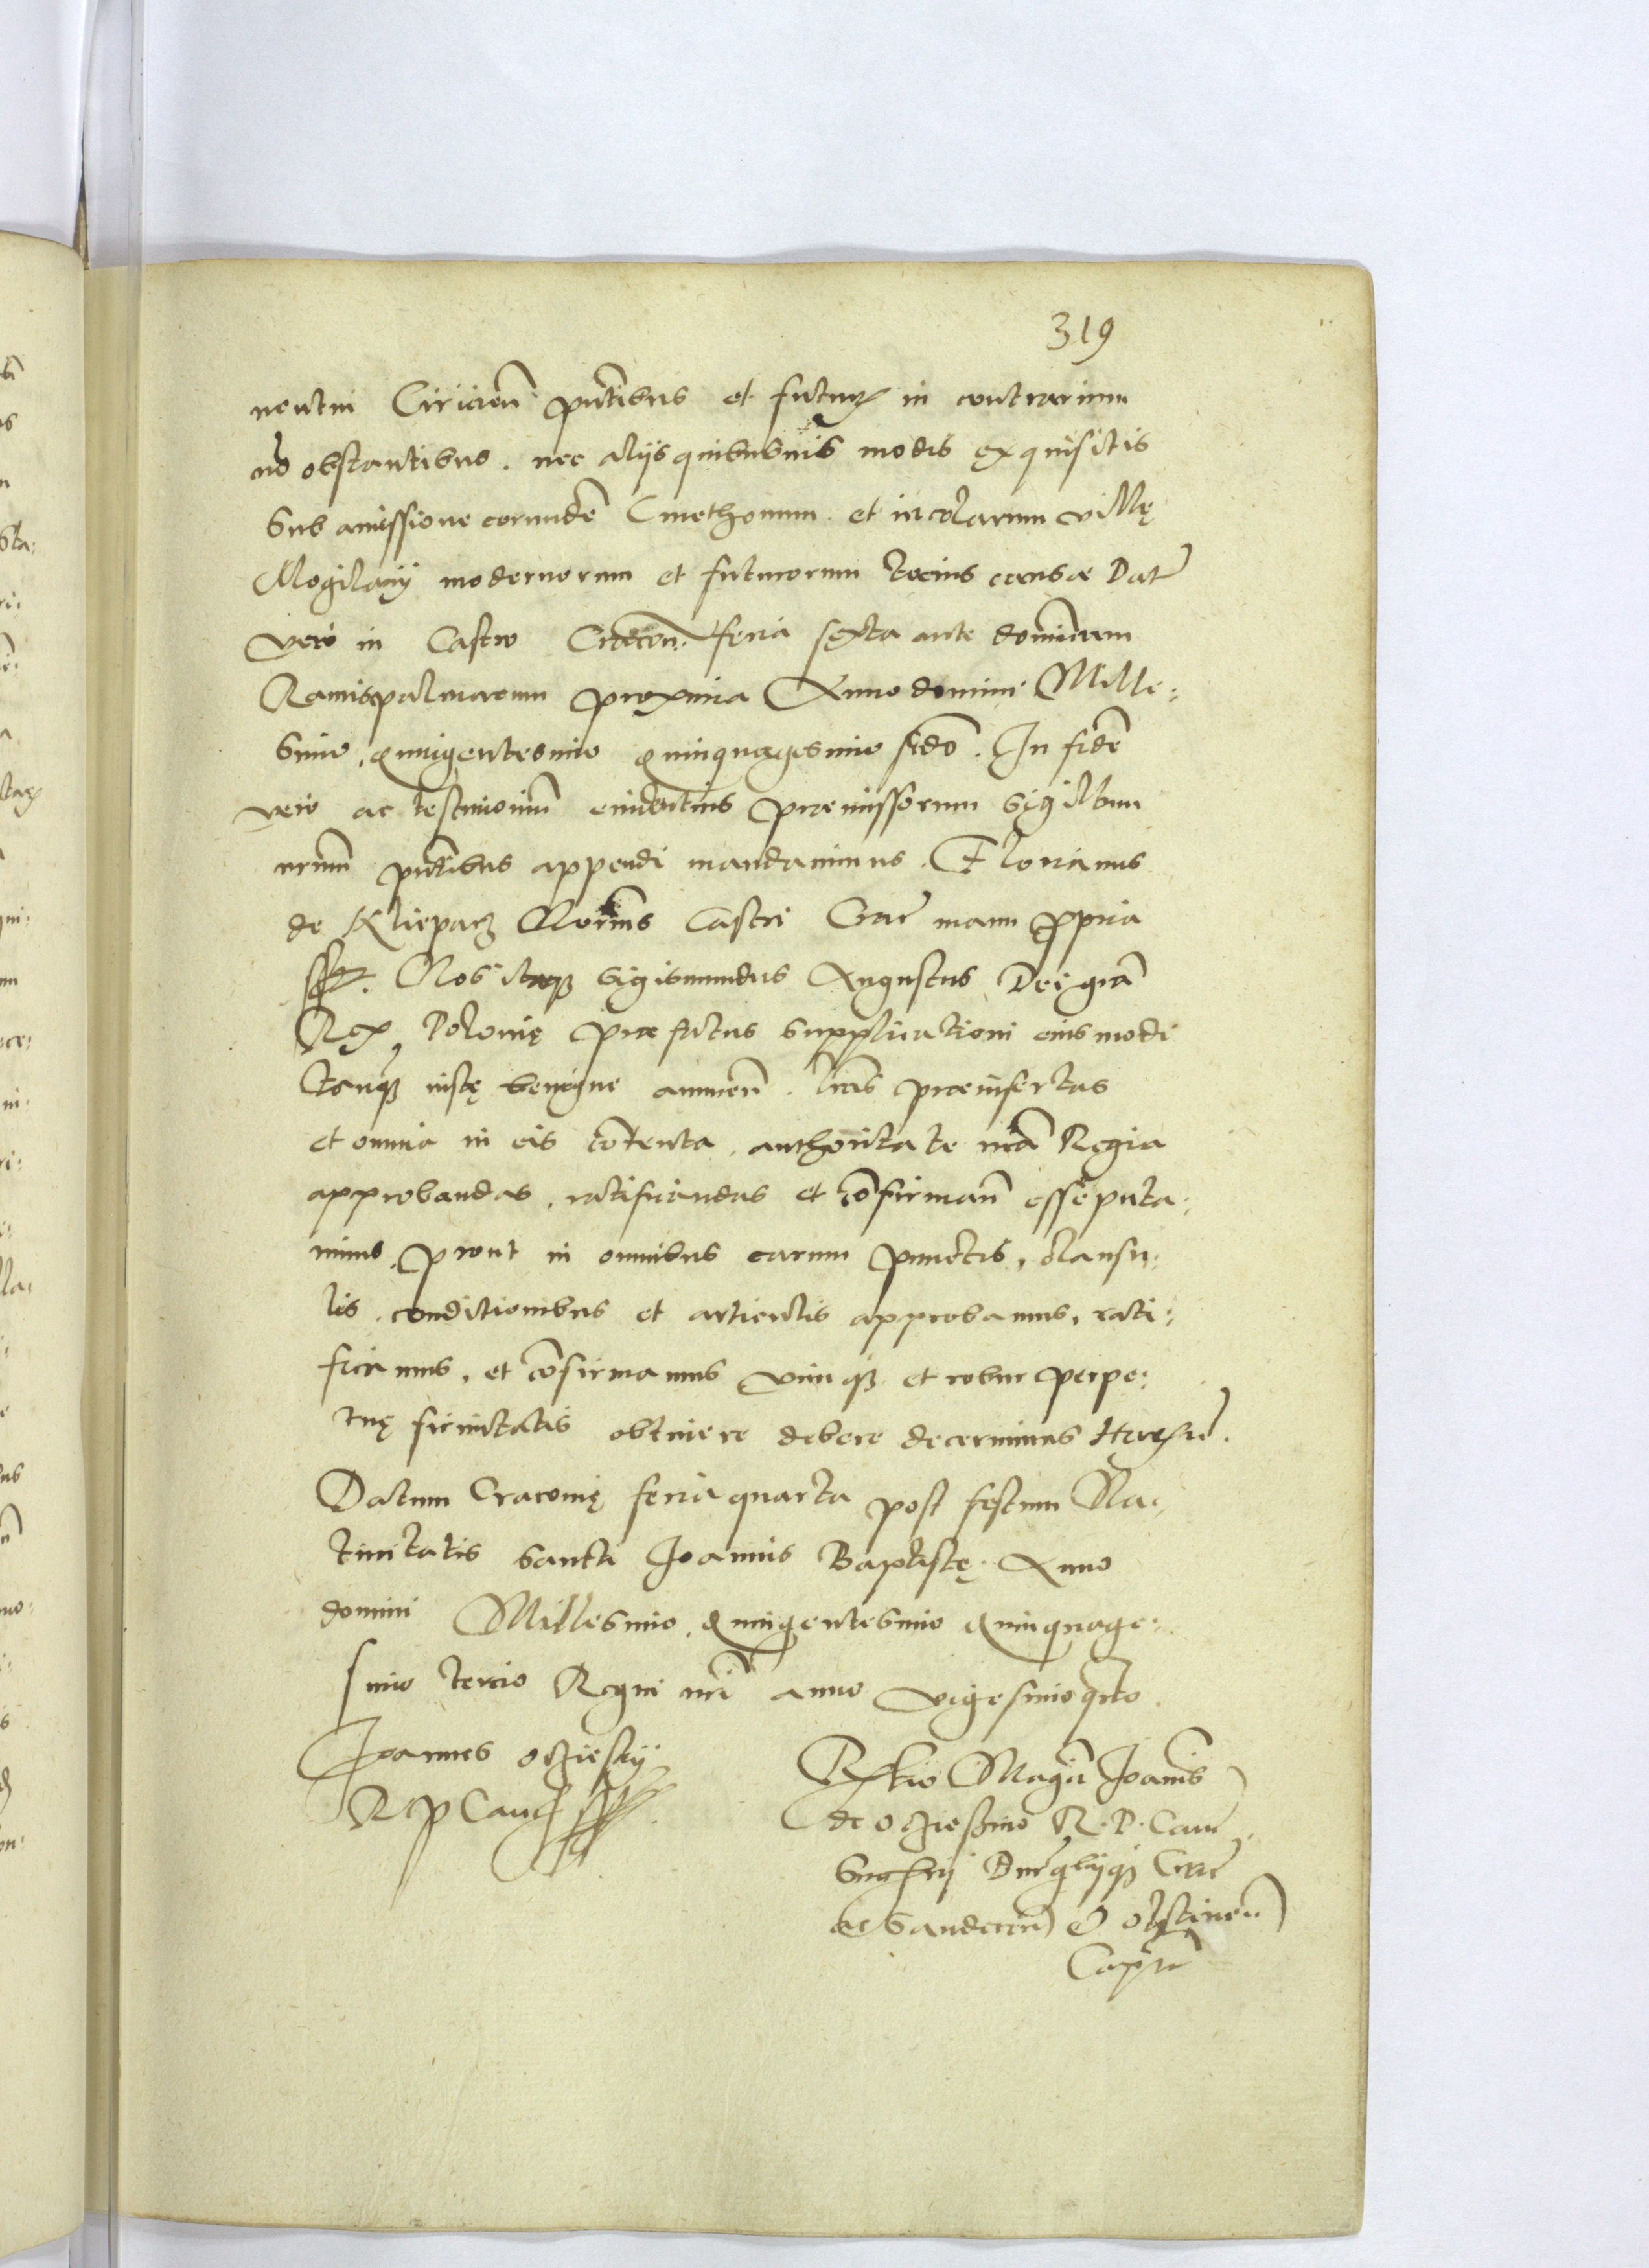 319
nentin Ciricien pntibus et futur in contrarium
no obstantibus. nec alijs quibusuis modis exquisitis
sub amissione eorundē Cmethonum et incolarum villę
Mogilany modernorum et futurorum tocius causae Dat
vero in Castro Cracon. feria sexta ante dominicam
Ramispalmarum proxima Anno domini Mille:
simo, quingentesimo quinquagesimo scdo. In fidē
vero ac testimoniū euidentius praemissorum sigillum
nrum pntibus appendi mandauimus. Florianus
de Klieparz Norius Castri Crac manu ppria
sst. Nos itaq Sigismundus Augustus Dei gra
Rex Polonię praefatus supplicationi eiusmodi
tanq iustę benigne annuen. lras praeinsertas
et omnia in eis cōtenta, authoritate nra Regia
approbandas, ratificandas et cōfirman esse puta:
uimus, prout in omnibus earum punctis, clausu:
lis, conditionibus et articulis approbamus, rati:
ficamus, et cōfirmamus vimq et robur perpe:
tuę firmitatis obtinere debere decernimus
Datum Cracouię feria quarta post festum Na:
tiuitatis Sancti Joannis Baptistę. Anno
domini Millesimo, quingentesimo quinquage:
simo tercio Regni nri anno vigesimoqrto.
Joannes oczieskij
R P Canc sst
Rlatio Magci Joanis
de oczieszino R. P. Canc
Burg Crac
ac Sandecen olstinen
Capit